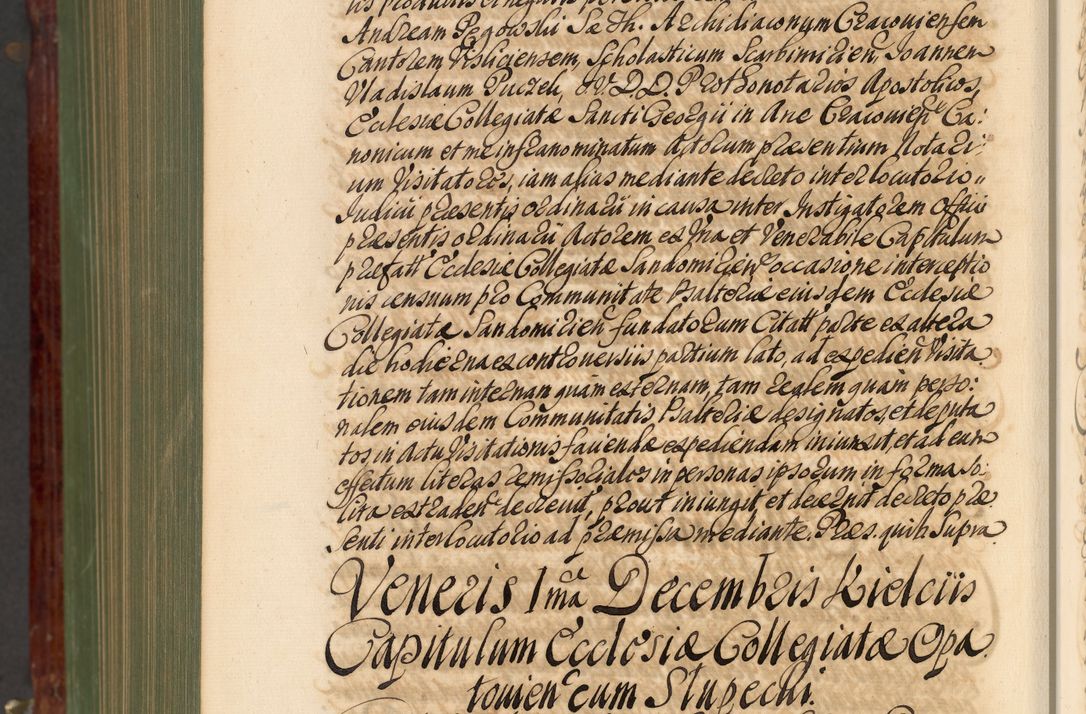 Andream Pęgowski Sac Th. Archidiaconum Cracoviensem
Cantorem Visliciensem, Scholasticum Scarbimirien, Joannem
Vladislaum Puczek, J.V.D.D. Prothonotarios Apostolicos,
Ecclesiæ Collegiatæ Sancti Georgii in Arce Cracovien Ca:
nonicum et me infranominatum Actorum præsentium Notari:
um Visitatores, iam alias mediante decreto interlocutorio,,
Judicii præsentis ordinarii in causa inter Instigatorem Officii
præsentis ordinarii Actorem ex Una et Venerabile Capitulum
præfatt Ecclesiæ Collegiatæ Sandomirien occasione interceptio
nis censuum pro Communitate Psalteriæ eiusdem Ecclesiæ
Collegiatæ Sandomirien fundatorum Citatt parte ex altera
die hodierna ex controversiis partium lato, ad expedien Visita
tionem tam internam quam externam, tam realem quam perso:
nalem eiusdem Com̃unitatis Psalteriæ designatos, et deputa
tos in Actu Visitationis faciendæ expediendam iniunxit, et ad eum
effectum literas remissoriales in personas ipsorum in forma so:
lita extraden decrevit, prout iniungit, et decernit decreto præ
senti interlocutorio ad præmissa mediante. Præs. quib. supra.
Veneris 1ma Decembris Kielciis
Capitulum Ecclesiæ Collegiatæ Opa
tovien cum Slupecki.